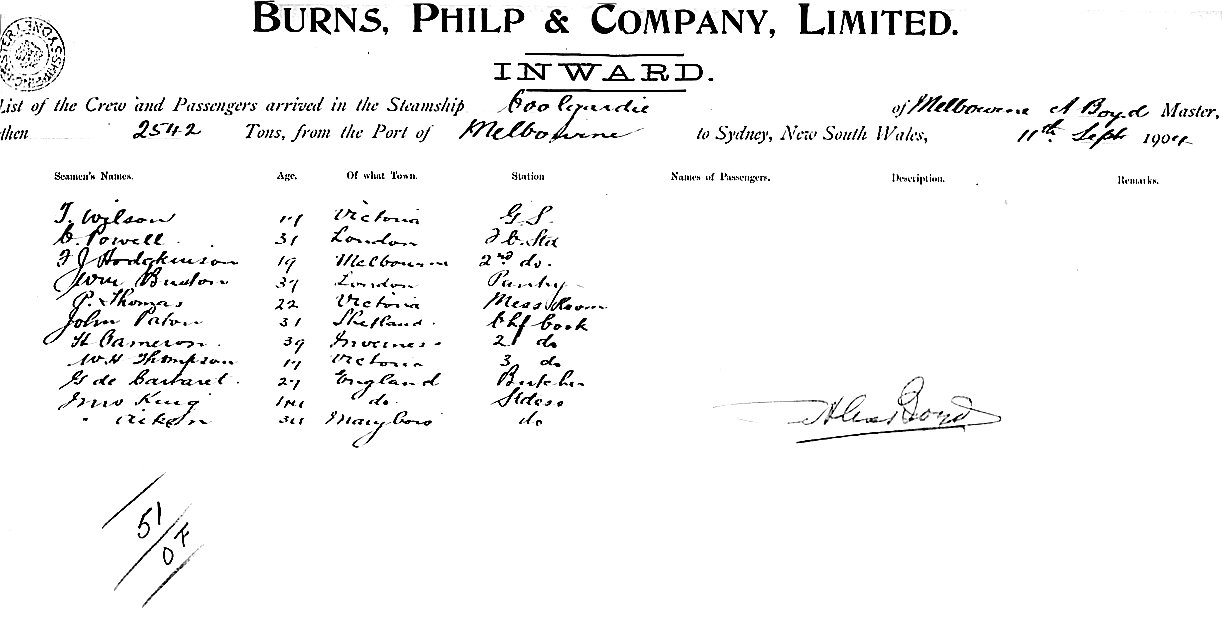 BURNS, PHILP & COMPANY, LIMITED.
INWARD.
List of the Crew and Passengers arrived in the Steamship Coolgardie of Melbourne A Boyd Master,
then 2542 Tons, from the Port of Melbourne to Sydney, New South Wales, 11th Sept 1904
Seamen's Names. Age. Of what Town. Station Names of Passengers. Description. Remarks.
T. Wilson Victoria G.S.
C. Powell 31 London
F J Hodgkinson 19 Melbourne 2nd do.
Wm Buxton 37 London Pantry
P. Thomas 22 Victoria Mess Room
John Paton 31 Shetland. Chf Cook
H Cameron. 39 Inverness 2 do
W H Thompson Victoria 3 do
G de Carteret. 27 England Butcher
King do. Stdess
" Aitken Maryboro do
Alex Boyd
51